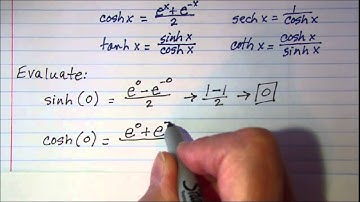 cosh x = (e^x + e^-x)/2    sech x = 1/(cosh x)
tanh x = (sinh x)/(cosh x)    coth x = (cosh x)/(sinh x)
Evaluate:
sinh (0) = (e^0 - e^-0)/2 → (1-1)/2 → 0
cosh (0) = e^0 + e^-